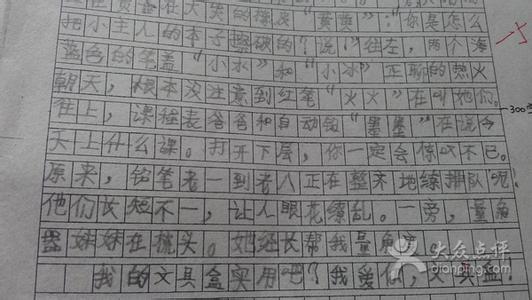 责备在大哭的橡皮“黄黄”：“你是怎么
把小主人的本子擦破的？说！”往左，两个海
蓝色的笔盖“小水”和“小冰”正聊的热火
朝天，根本没注意到红笔“火火”在叫她们。
300
往上，课程表爸爸和自动铅“墨墨”在说今
天上什么课。打开下层，你一定会惊叹不已。
原来，铅笔老一到老八正在整齐地练排队呢！
他们长短不一，让人眼花缭乱。一旁，量角
器妹妹在梳头。她还长帮我量角度。
我的文具盒实用吧？我爱你，文具盒
大众点评
dianping.com